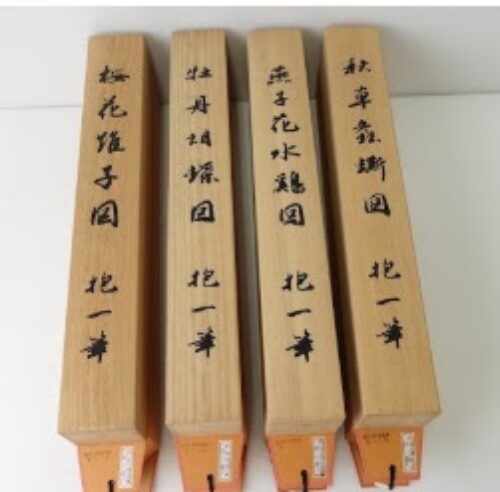 桜花雉子図 抱一筆
牡丹胡蝶図 抱一筆
燕子花水鶏図 抱一筆
秋草螽蟖図 抱一筆